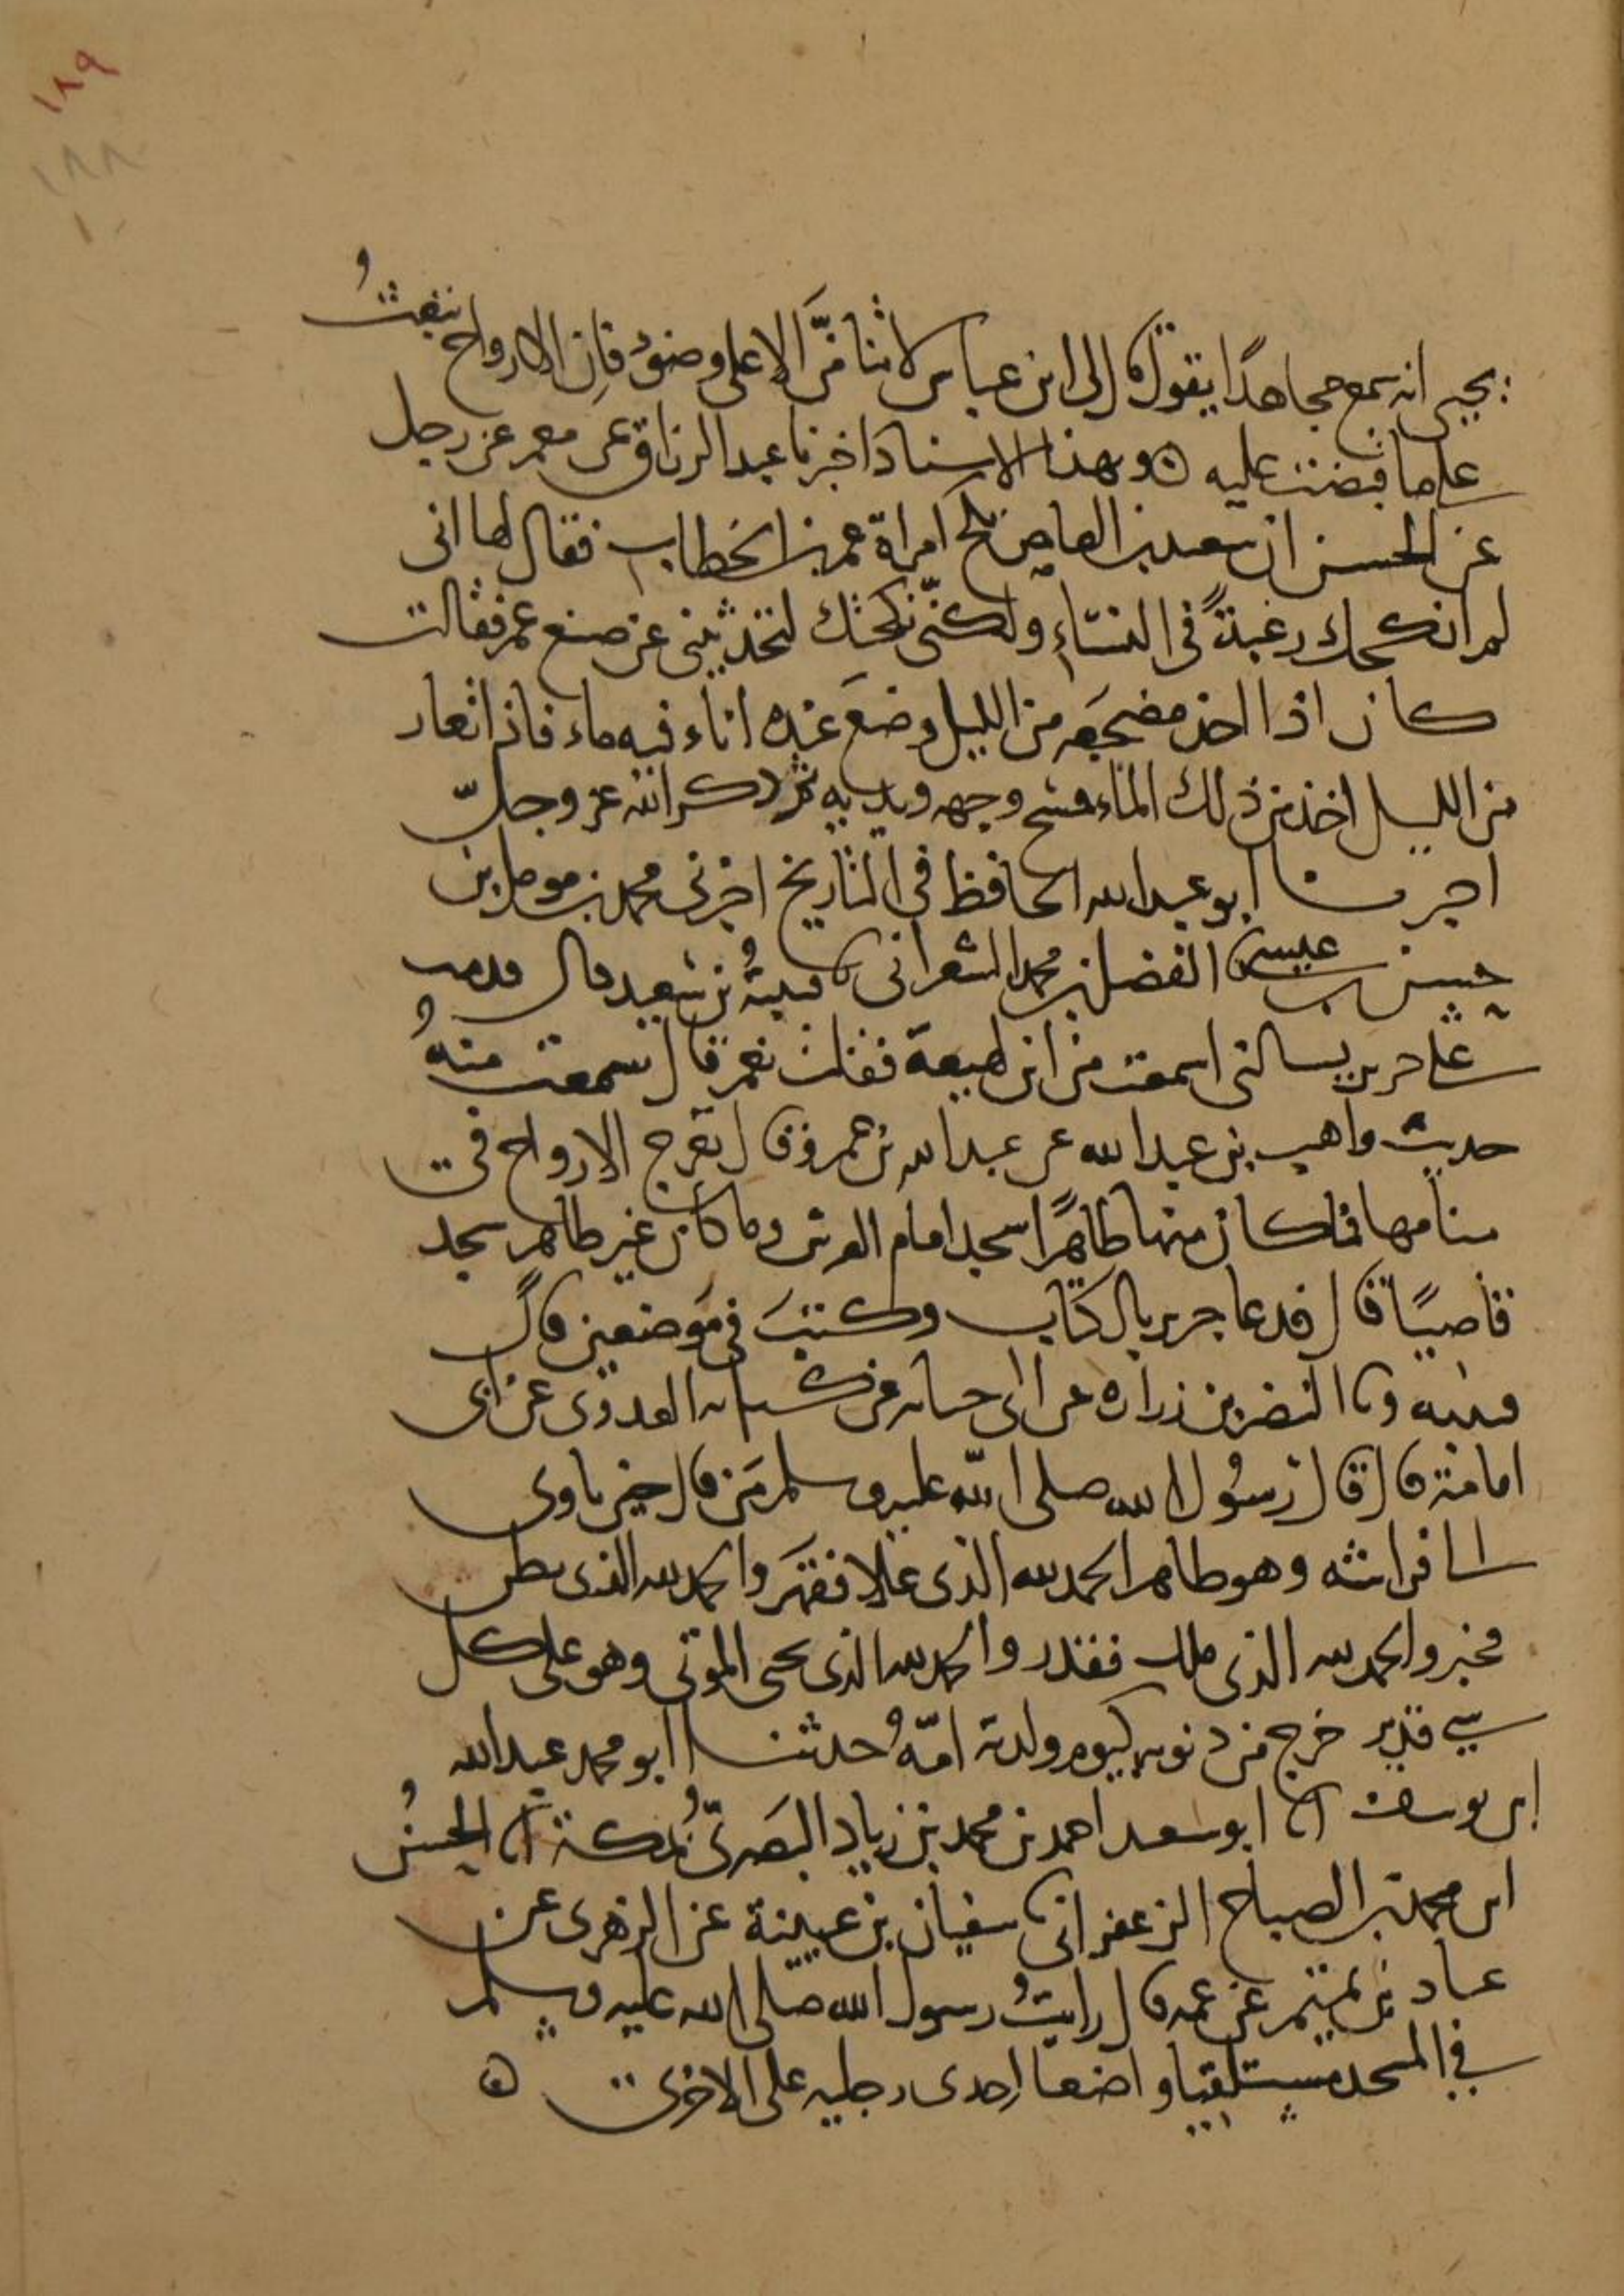 ١٨٩
١٨٨
يحيى انه سمع مجاهدًا يقول قال لى ابن عباس لا تنامَنَّ الا على وضوءٍ فان الارواح تبعثُ
على ما قبضت عليه ۞ وبهذا الاسناد اخبرنا عبد الرزاق عن معمر عن رجل
عن الحسن ان سعيد بن العاص نكح امراة عمر بن الخطاب فقال لها انى
لم انكحك رغبةً فى النساءِ ولكنّى نكحتك لتحدثيننى عن صنع عمر فقالت
كان اذا اخذ مضجعَه من الليل وضعَ عنده اناء فيه ماء فاذا تعار
من الليل اخذ من ذلك الماء فمسح وجهه ويديه ثم ذكر الله عز وجلّ
اخبرنا ابو عبد الله الحافظ فى التاريخ اخبرنى محمد بن مومل بن
حسن بن عيسى نا الفضل بن محمد الشعرانى نا قتيبةُ بن سعيد قال قدمت
على جرير يسالنى اسمعت من ابن لهيعة فقلت نعم قال سمعت منهُ
حديث واهب بن عبد الله عن عبد الله بن عمرو قال تعرج الارواح فى
منامها فما كان منها طاهرًا سجد امام العرش وما كان غير طاهر سجد
قاصيًا قال فدعا جرير بالكتاب وكتبَ فى موضعين قال
قتيبه ونا النضر بن زراره عن ابى حسانه عن كسانه العدوى عن ابى
امامة قال قال رسُول الله صلى الله عليه وسلم مَن قال حين ياوى
الى فراشه وهو طاهر الحمد لله الذى علا فقهر والحمد لله الذى بطن
فخبر والحمد لله الذى ملك فقدر والحمد لله الذى يحى الموتى وهو على كل
شى قدير خرج من ذنوبه كيوم ولدته امّهُ حدثنا ابو محمد عبد الله
ابن يوسف انا ابو سعيد احمد بن محمد بن زياد البصرىُّ بمكة انا الحسنُ
ابن محمد بن الصباح الزعفرانى نا سفيان بن عيينة عن الزهرى عن
عباد بن تميم عن عمه قال رايتُ رسول الله صلى الله عليه وسلم
فى المسجد مستلقيا واضعا احدى رجليه على الاخرى ۞